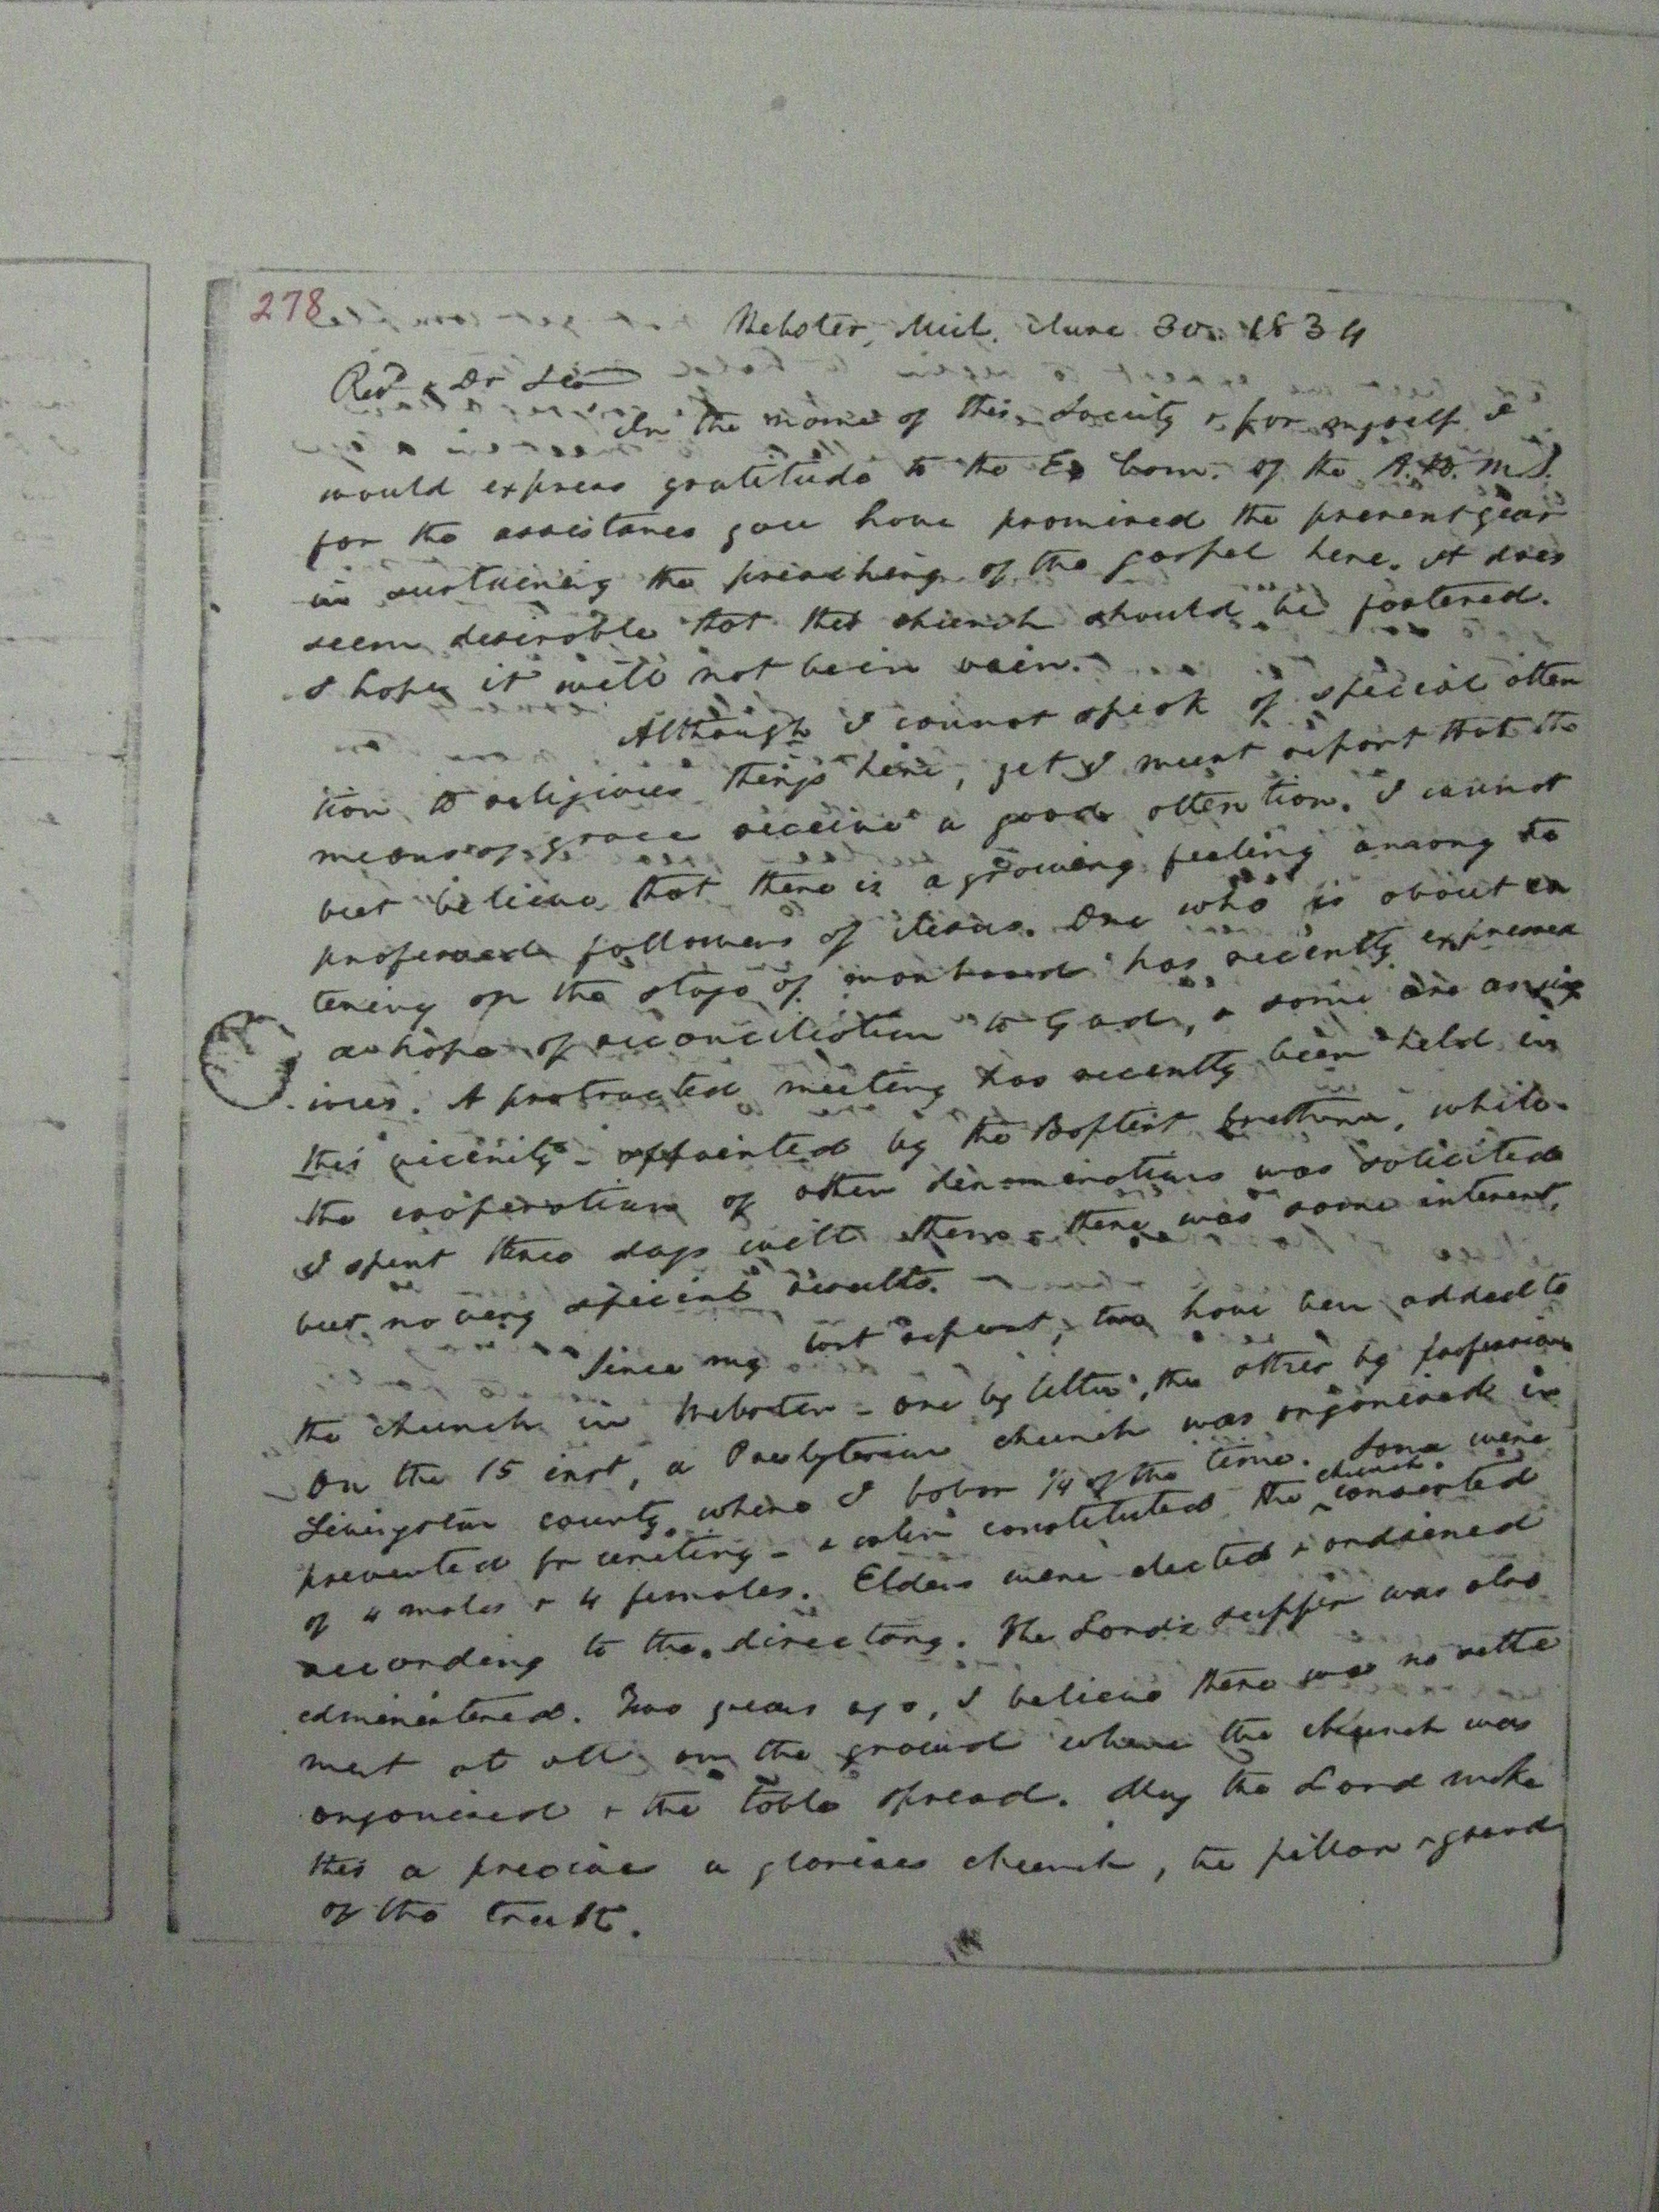 278
Webster, Mich. June 30. 1834
Revd & Dr Sir
In the name of this Society & for myself I
would express gratitude to the Ex Com. of the A.H.M.S.
for the assistance you have promised the present year
in sustaining the preaching of the gospel here. It does
seem desirable that this church should be fostered.
I hope it will not be in vain.
Although I cannot speak of special atten
tion to religious things here, yet I must report that the
means of grace receive a good attention. I cannot
but believe that there is a growing feeling among the
professed followers of Jesus. One who is about en
tering on the stage of manhood has recently expressed
a hope of reconciliation to God, & some are anx
ious. A protracted meeting has recently been held in
this vicinity - appointed by the Baptist brethren, while
the cooperation of other denominations was solicited
I spent three days with them - there was some interest,
but no very special results. —
Since my last report, two have been added to
the church in Webster - one by letter, the other by profession
On the 15 inst, a Presbyterian church was organised in
Livingston county where I labor 1/4 of the time. Some were
prevented fr uniting - & when constituted the church consisted
of 4 males & 4 females. Elders were elected & ordained
according to the directory. The Lord's supper was also
administered. Two years ago, I believe there was no settle
ment at all on the ground where the church was
organised & the table spread. May the Lord make
this a precious a glorious church, the pillar & ground
of the truth.